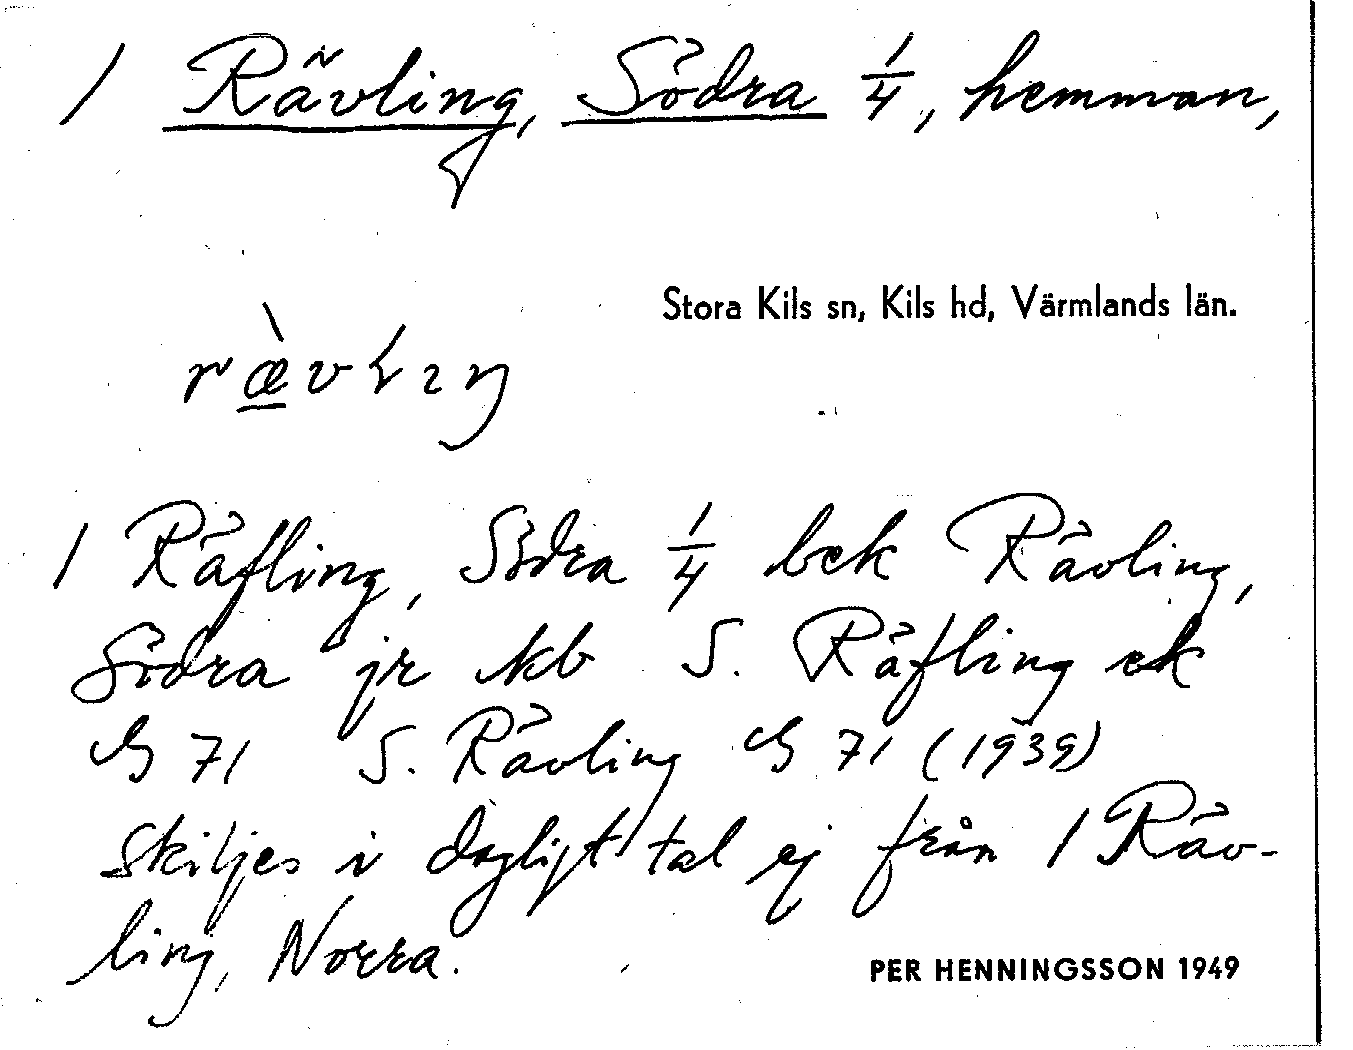 1 Rävling, Södra 1/4, hemman,
Stora Kils sn, Kils hd, Värmlands län.
1 Räfling, Södra 1/4 bek Rävling,
Södra jr kb S. Räfling ek
G 71 S. Rävling G 71 (1939)
Skiljes i dagligt tal ej från 1 Räv-
ling, Norra.
PER HENNINGSSON 1949